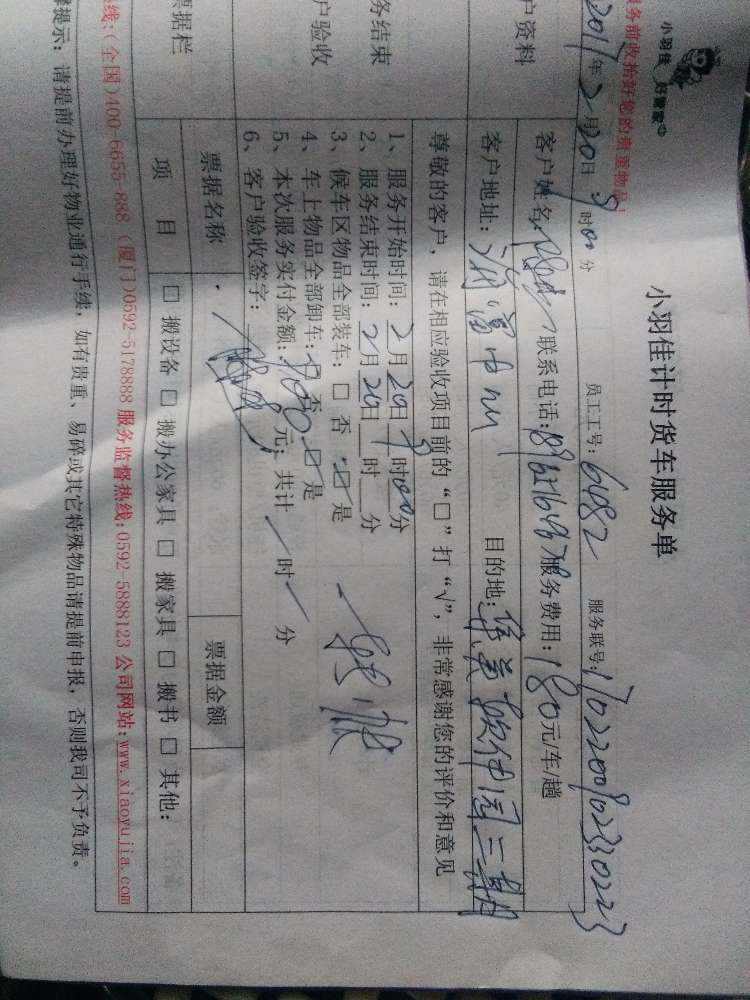 小羽佳 好管家
服务前收拾好您的贵重物品!
小羽佳计时货车服务单
2017年2月20日9时00分 员工工号:6482 服务联号:1702200902330223
户资料 客户姓名: 联系电话: 服务费用:180元/车/趟
客户地址: 目的地: 软件园二期
尊敬的客户,请在相应验收项目前的“□”打“√”,非常感谢您的评价和意见
务结束
户验收
1、服务开始时间:2月20日9时00分
2、服务结束时间:2月20日 时 分
3、候车区物品全部装车:□ 否 □ 是
4、车上物品全部卸车:□ 否 □ 是
5、本次服务实付金额: 元;共计 时 分
6、客户验收签字:
票据栏 票据名称 票据金额
项 目 □ 搬设备 □ 搬办公家具 □ 搬家具 □ 搬书 □ 其他:
线:(全国)400-6655-888 (厦门)0592-5178888 服务监督热线:0592-5888123 公司网站:www.xiaoyujia.com
提示:请提前办理好物业通行手续,如有贵重、易碎或其它特殊物品请提前申报,否则我司不予负责。